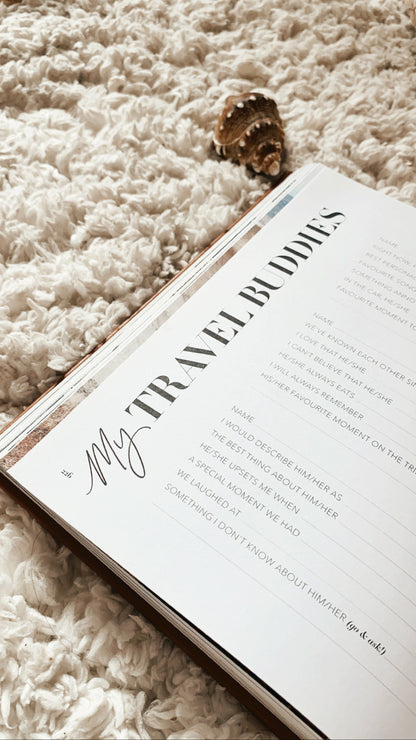 My TRAVEL BUDDIES
NAME
RIGHT NOW
BEST PERSON
FAVOURITE SONG
SOMETHING
IN THE CAR, HE/SHE
FAVOURITE MOMENT
NAME
WE'VE KNOWN EACH OTHER
I LOVE THAT HE/SHE
I CAN'T BELIEVE THAT HE/SHE
HE/SHE ALWAYS EATS
I WILL ALWAYS REMEMBER
HIS/HER FAVOURITE MOMENT ON THE
NAME
I WOULD DESCRIBE HIM/HER AS
THE BEST THING ABOUT HIM/HER
HE/SHE UPSETS ME WHEN
A SPECIAL MOMENT WE HAD
WE LAUGHED AT
SOMETHING I DON'T KNOW ABOUT HIM/HER (go & ask!)
226